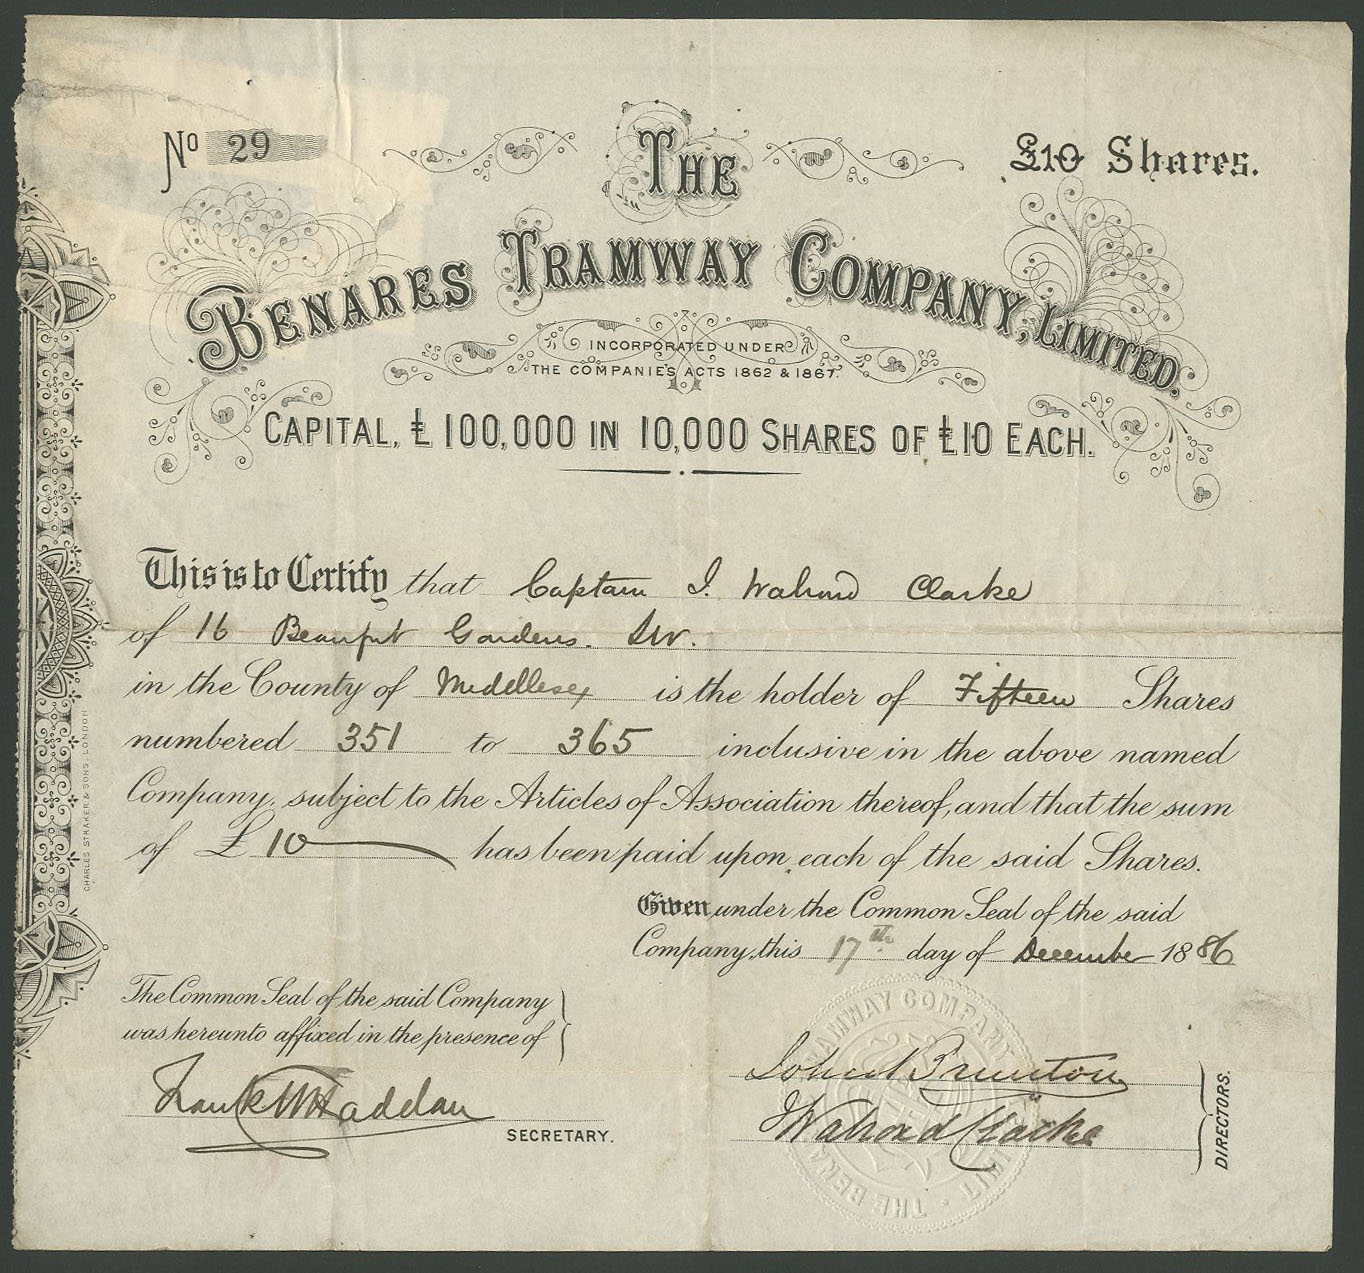 No 29
£10 Shares.
THE
BENARES TRAMWAY COMPANY, LIMITED.
INCORPORATED UNDER
THE COMPANIES ACTS 1862 & 1867.
CAPITAL, £100,000 IN 10,000 SHARES OF £10 EACH.
This is to Certify that Captain J. Walrond Clarke
of 16 Beaufort Gardens. SW.
in the County of Middlesex is the holder of Fifteen Shares
numbered 351 to 365 inclusive in the above named
Company, subject to the Articles of Association thereof, and that the sum
of £ 10 has been paid upon each of the said Shares.
Given under the Common Seal of the said
Company, this 17th day of December 1886
The Common Seal of the said Company
was hereunto affixed in the presence of
Frank Haddan
SECRETARY.
John Brunton
J Walrond Clarke
DIRECTORS.
CHARLES STRAKER & SONS, LONDON
TRAMWAY COMPANY
THE BENA